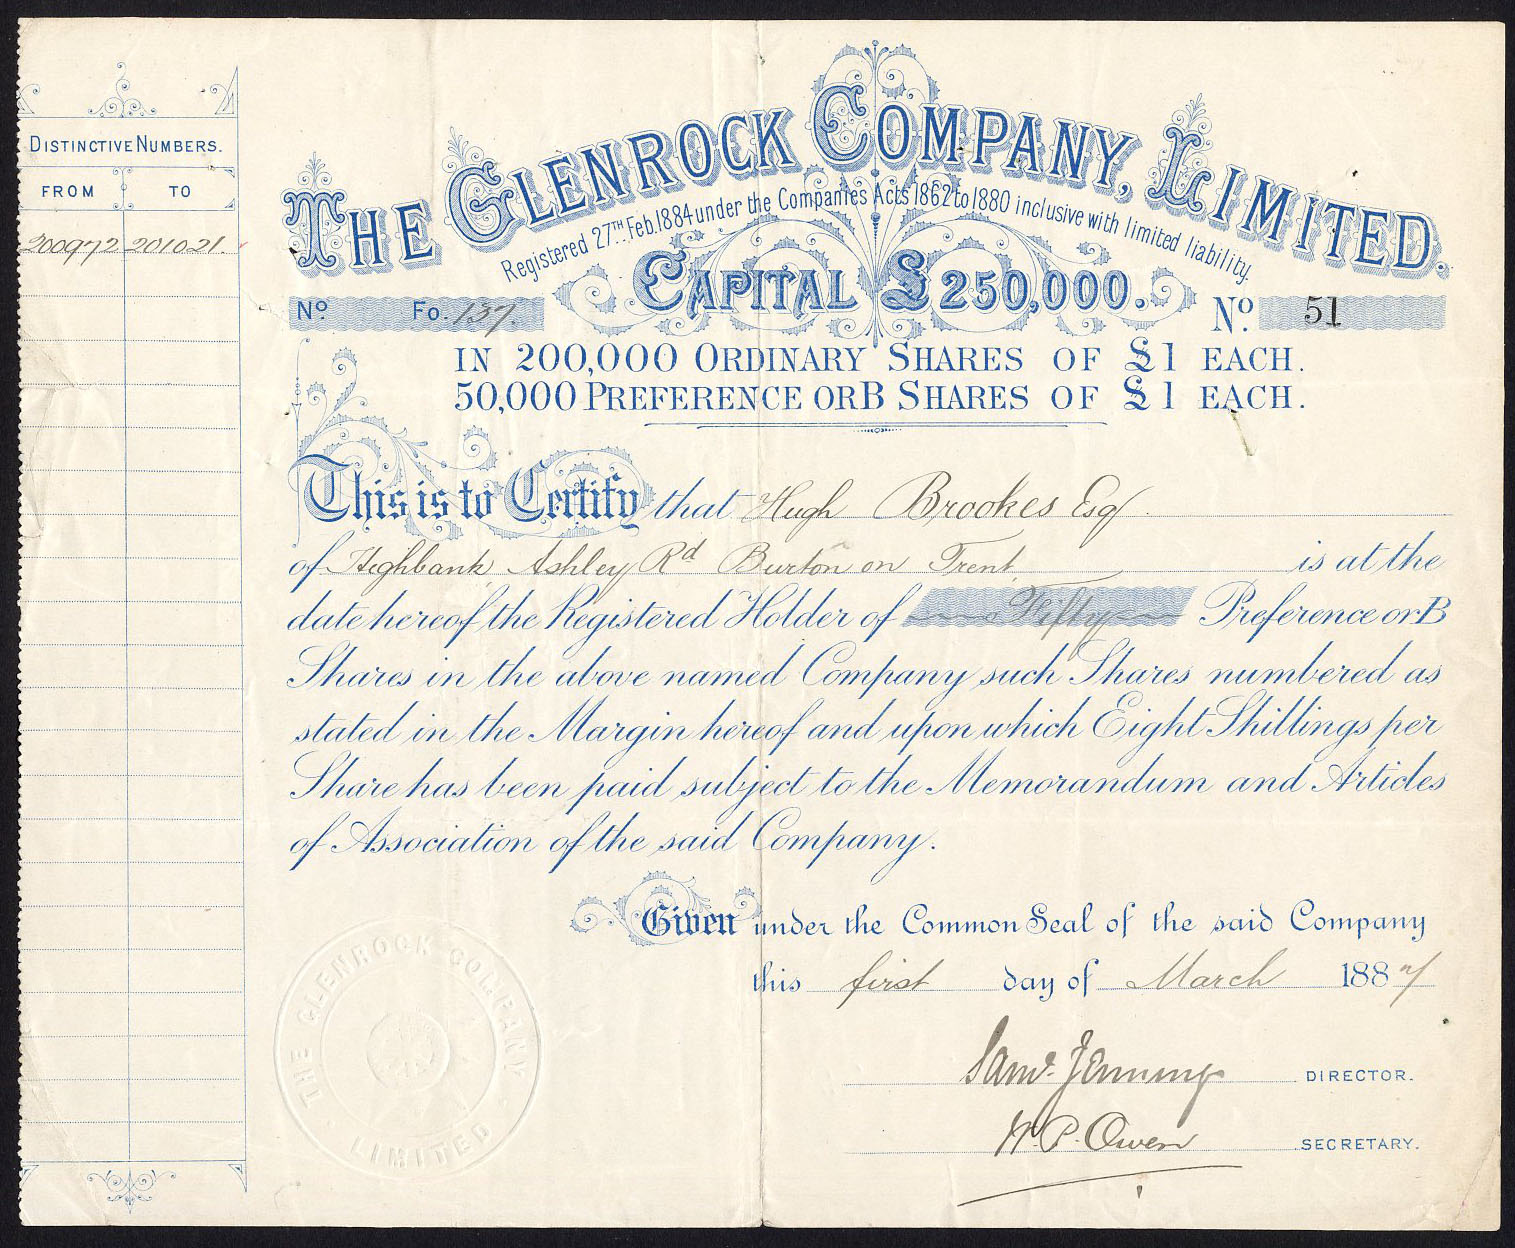 THE GLENROCK COMPANY, LIMITED.
Registered 27TH Feb. 1884 under the Companies Acts 1862 to 1880 inclusive with limited liability.
CAPITAL £250,000.
No Fo. 137. No. 51
IN 200,000 ORDINARY SHARES OF £1 EACH.
50,000 PREFERENCE OR B SHARES OF £1 EACH.
DISTINCTIVE NUMBERS.
FROM TO
200972 201021.
This is to Certify that Hugh Brookes Esq
of Highbank Ashley Rd Burton on Trent is at the
date hereof the Registered Holder of Fifty Preference or B
Shares in the above named Company such Shares numbered as
stated in the Margin hereof and upon which Eight Shillings per
Share has been paid subject to the Memorandum and Articles
of Association of the said Company.
Given under the Common Seal of the said Company
this first day of March 1887
Saml. Jennings DIRECTOR.
W. P. Owen SECRETARY.
THE GLENROCK COMPANY
LIMITED